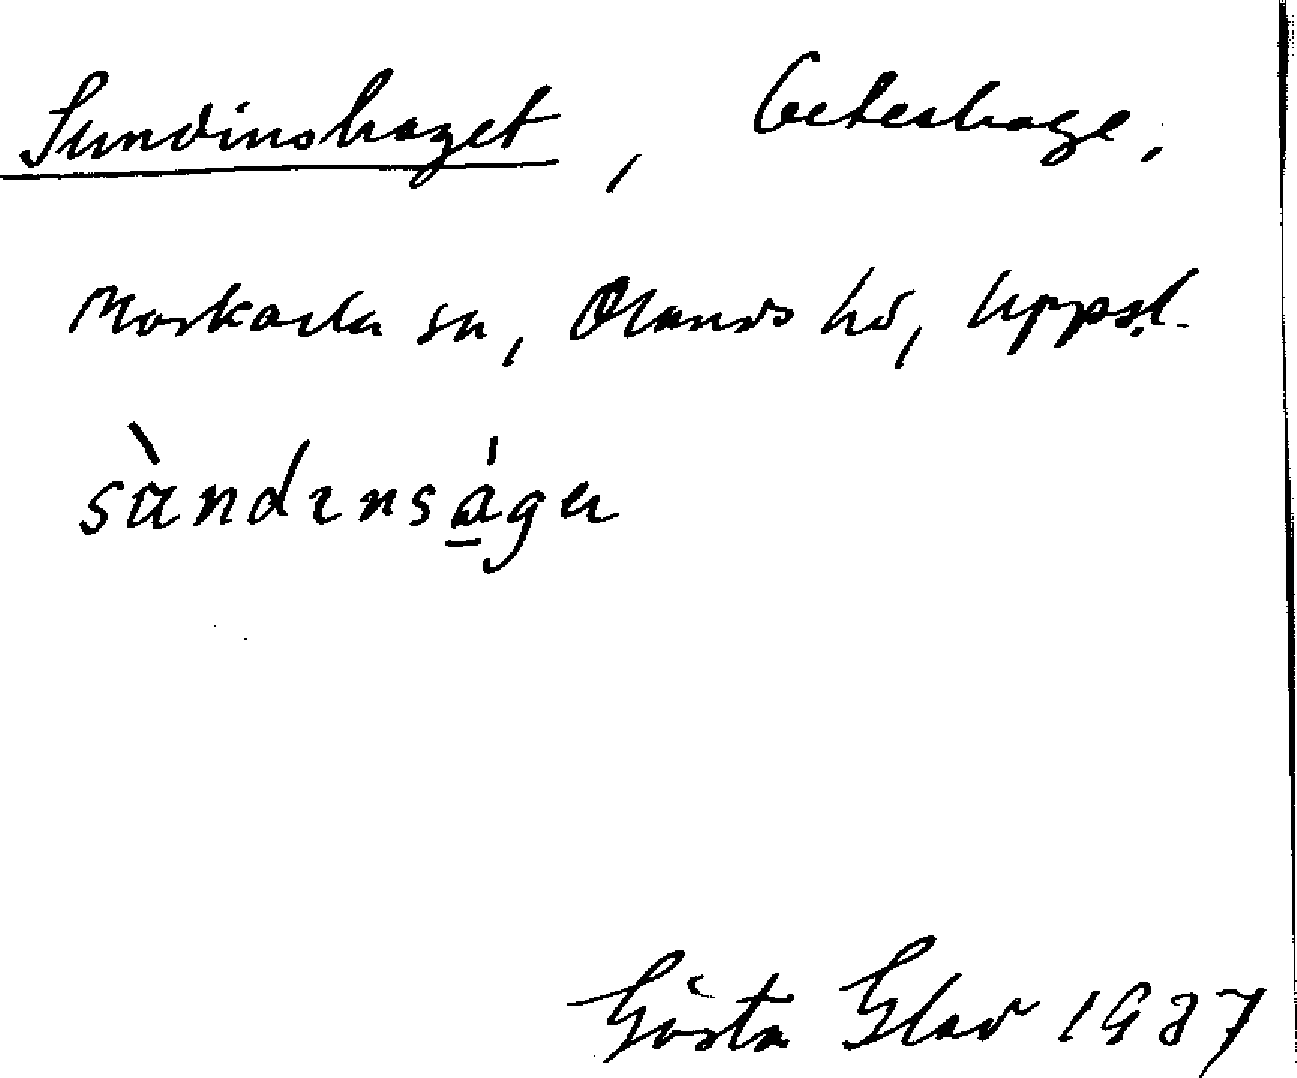 Sundinshaget, beteshage,
Morkarla sn, Olands hd, Uppsl.
sàndɩnságɐ
Gösta Elav 1937